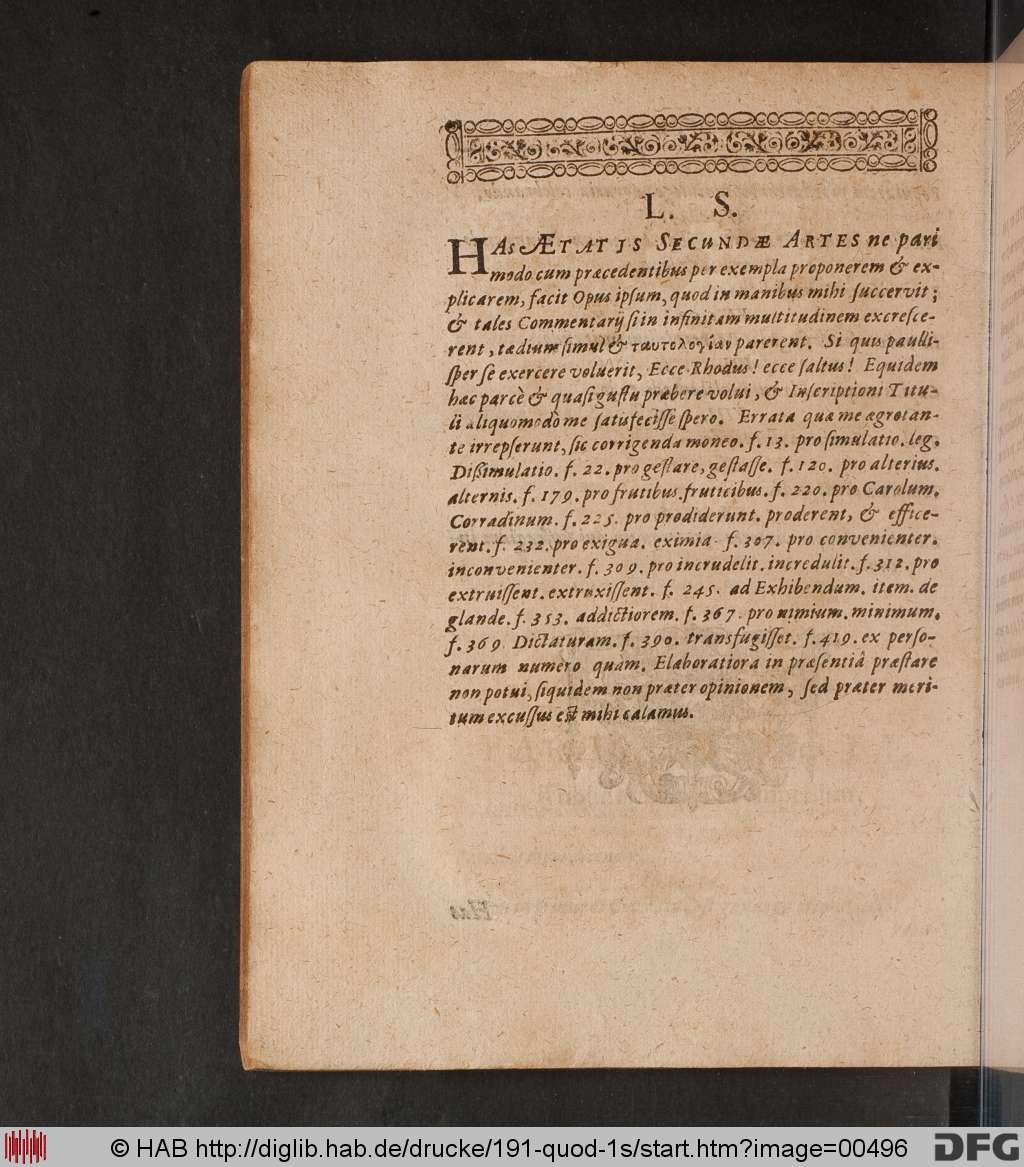 L. S.
HAs ÆTATIS SECUNDÆ ARTES ne pari
modo cum præcedentibus per exempla proponerem & ex-
plicarem, facit Opus ipsum, quod in manibus mihi succervit;
& tales Commentarij si in infinitam multitudinem excresce-
rent, tædium simul & ταυτολογίαν parerent. Si quis paulli-
sper se exercere voluerit, Ecce Rhodus! ecce saltus! Equidem
hæc parcè & quasi gustu præbere volui, & Inscriptioni Titu-
li aliquomodò me satisfecisse spero. Errata quæ me ægrotan-
te irrepserunt, sic corrigenda moneo. f. 13. pro simulatio. leg.
Dißimulatio. f. 22. pro gestare, gestasse. f. 120. pro alterius.
alternis. f. 179. pro frutibus. fruticibus. f. 220. pro Carolum.
Corradinum. f. 225. pro prodiderunt. proderent, & effice-
rent. f. 232. pro exigua. eximia. f. 307. pro convenienter.
inconvenienter. f. 309. pro incrudelit. incredulit. f. 312. pro
extruissent. extruxissent. f. 245. ad Exhibendum. item. de
glande. f. 353. addictiorem. f. 367. pro nimium. minimum.
f. 369 Dictaturam. f. 390. transfugisset. f. 419. ex perso-
narum numero quàm. Elaboratiora in præsentiâ præstare
non potui, siquidem non præter opinionem, sed præter meri-
tum excussus est mihi calamus.
© HAB http://diglib.hab.de/drucke/191-quod-1s/start.htm?image=00496
DFG